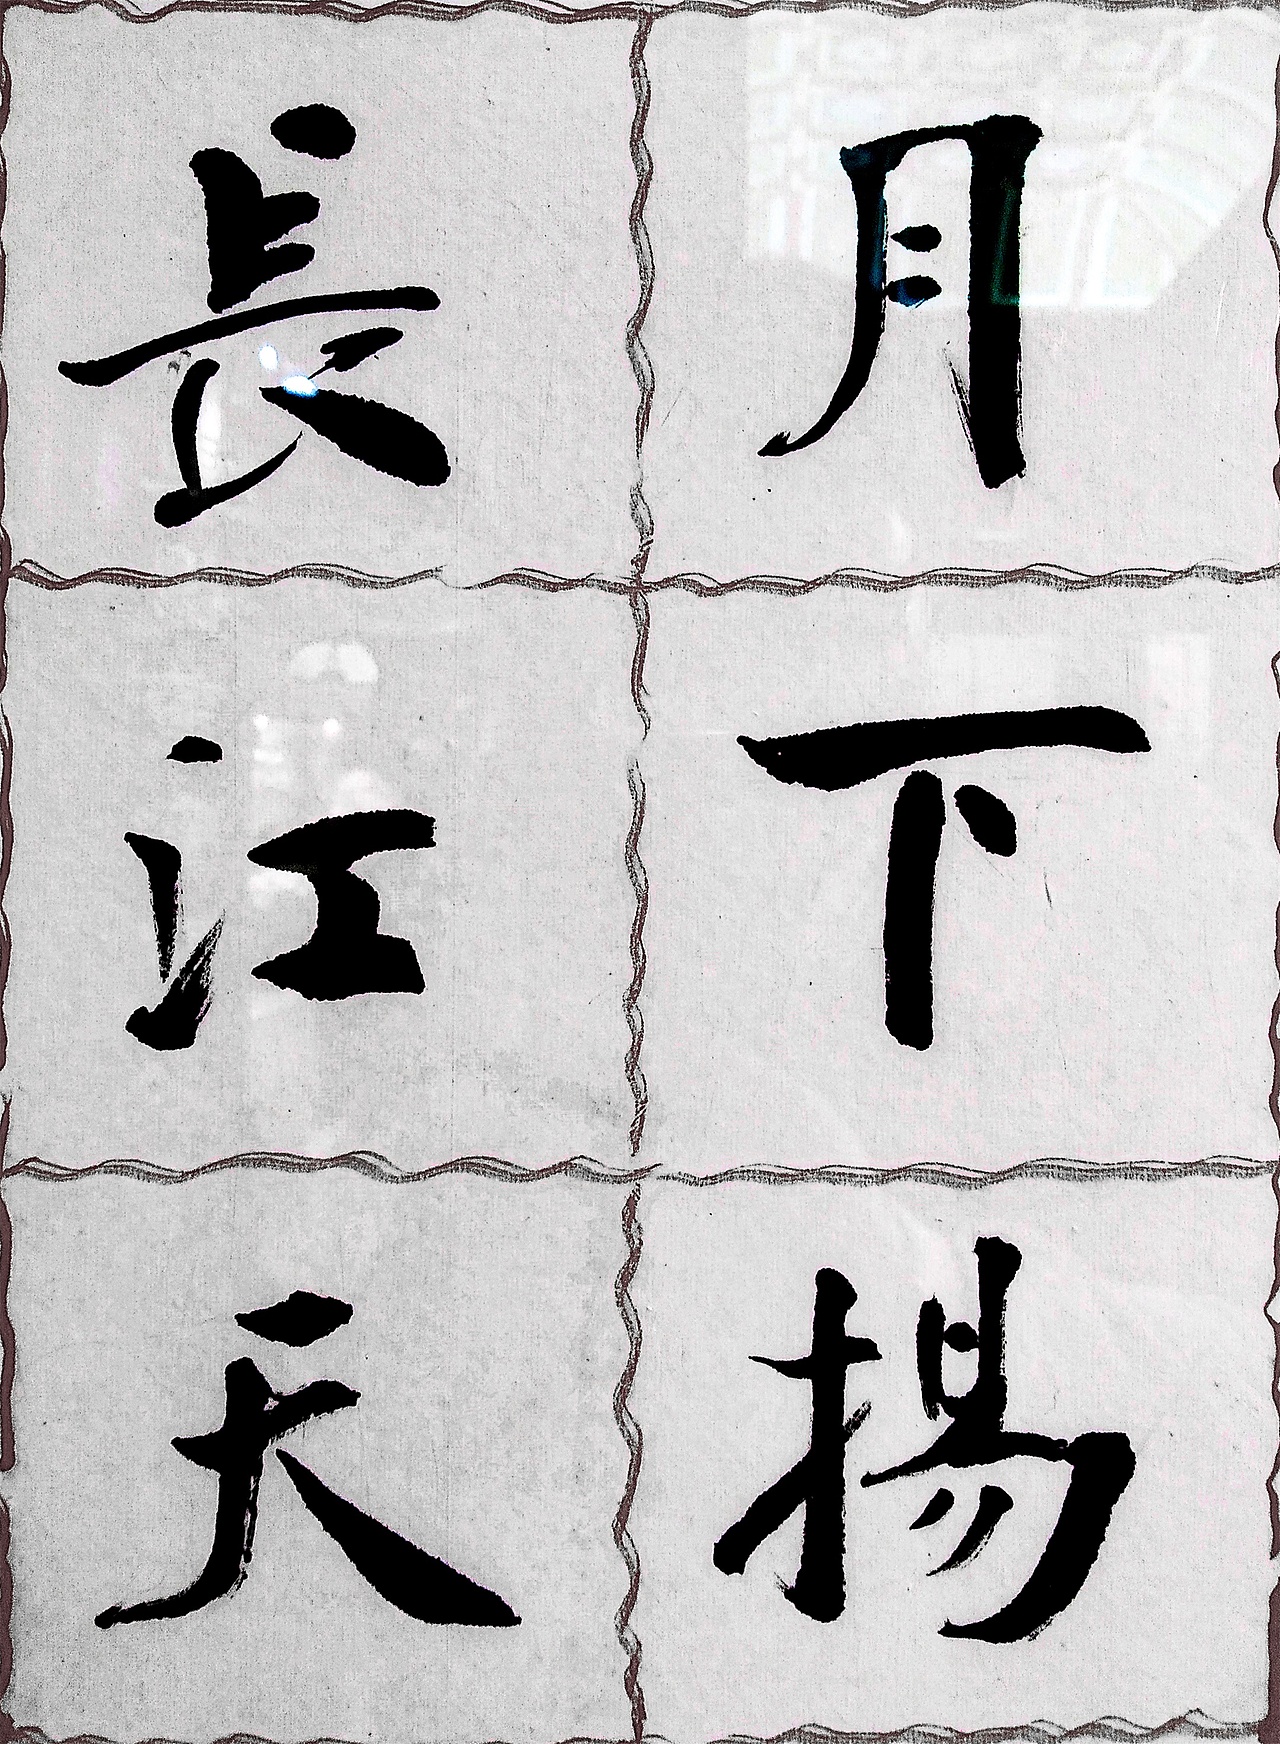 月下揚
長江天